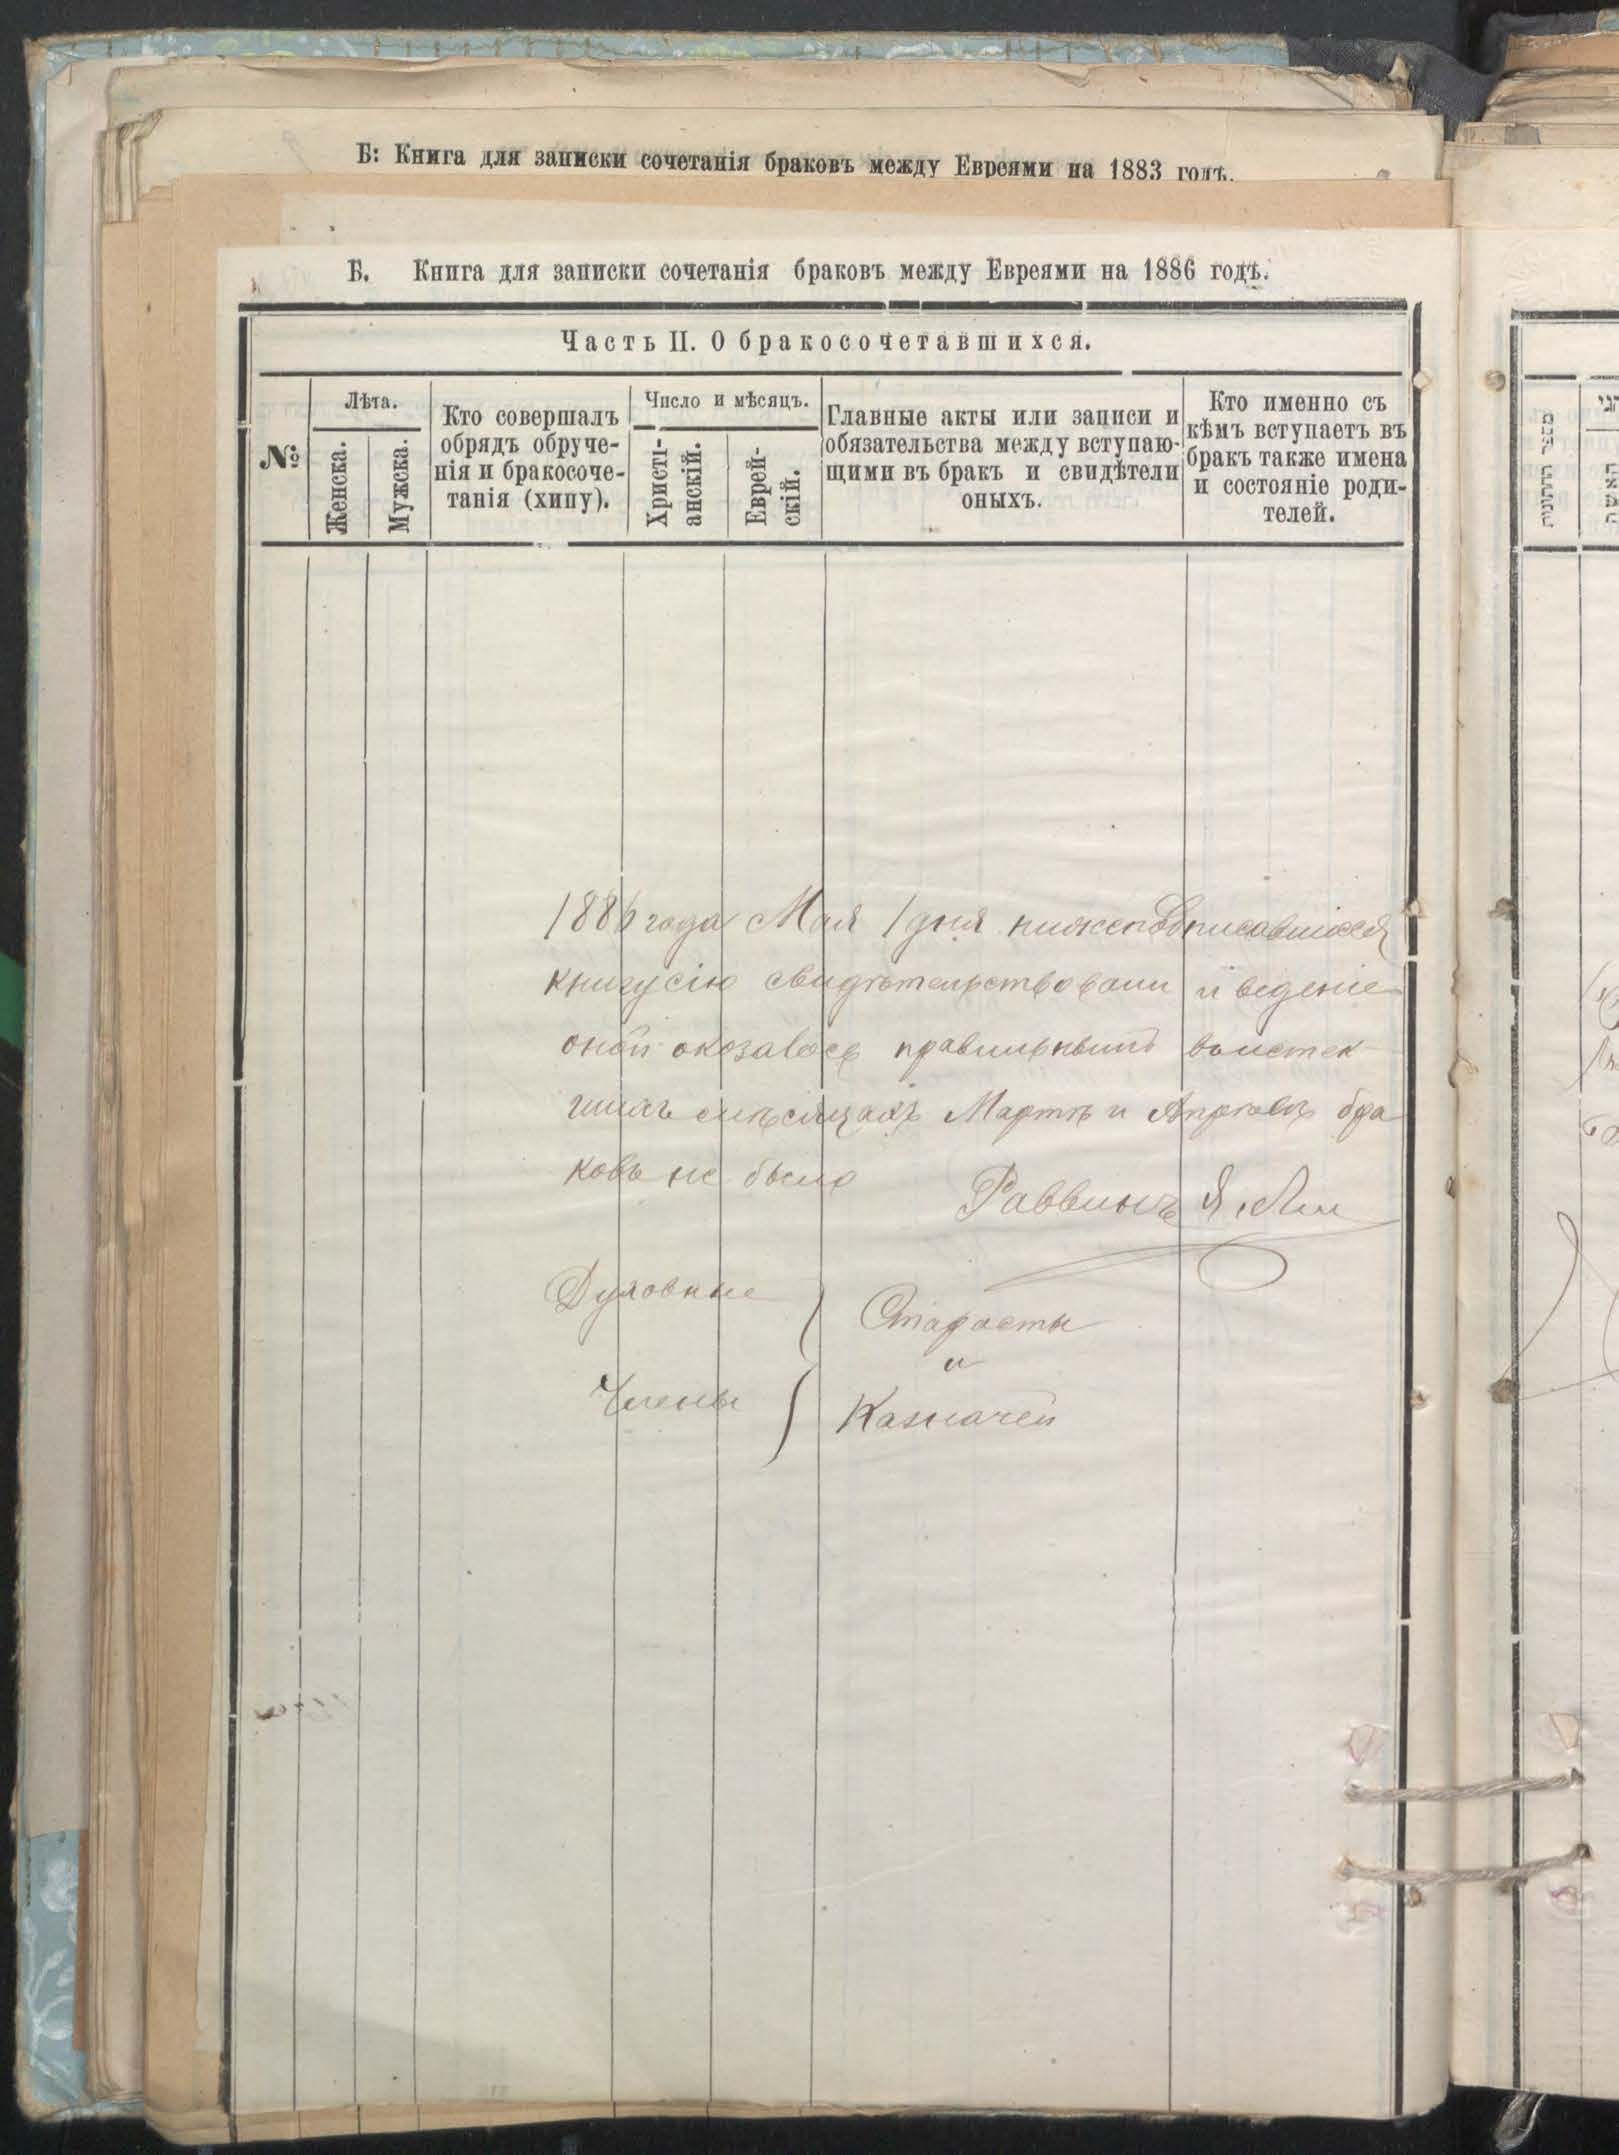 Б: Книга для записки сочетанія браковъ между Евреями на 1883 годъ.
Б. Книга для записки сочетанія браковъ между Евреями на 1886 годъ.
Часть II. О бракосочетавшихся.
№
Лѣта.
Женска.
Мужска.
Кто совершалъ
обрядъ обруче-
нія и бракосоче-
танія (хипу).
Число и мѣсяцъ.
Христі-
анскій.
Еврей-
скій.
Главные акты или записи и
обязательства между вступаю-
щими въ бракъ и свидѣтели
оныхъ.
Кто именно съ
кѣмъ вступаетъ въ
бракъ также имена
и состояніе роди-
телей.
1886 года Мая 1 дня нижеподписавшіеся
книгу сію свидѣтельствовали и веденіе
оной оказалось правильнымъ въ истек-
шихъ мѣсяцахъ Мартѣ и Апрѣлѣ бра
ковъ не было
Раввинъ Я.
Духовные
Старосты
и
Члены
Казначей
מספר החתונות
האשה